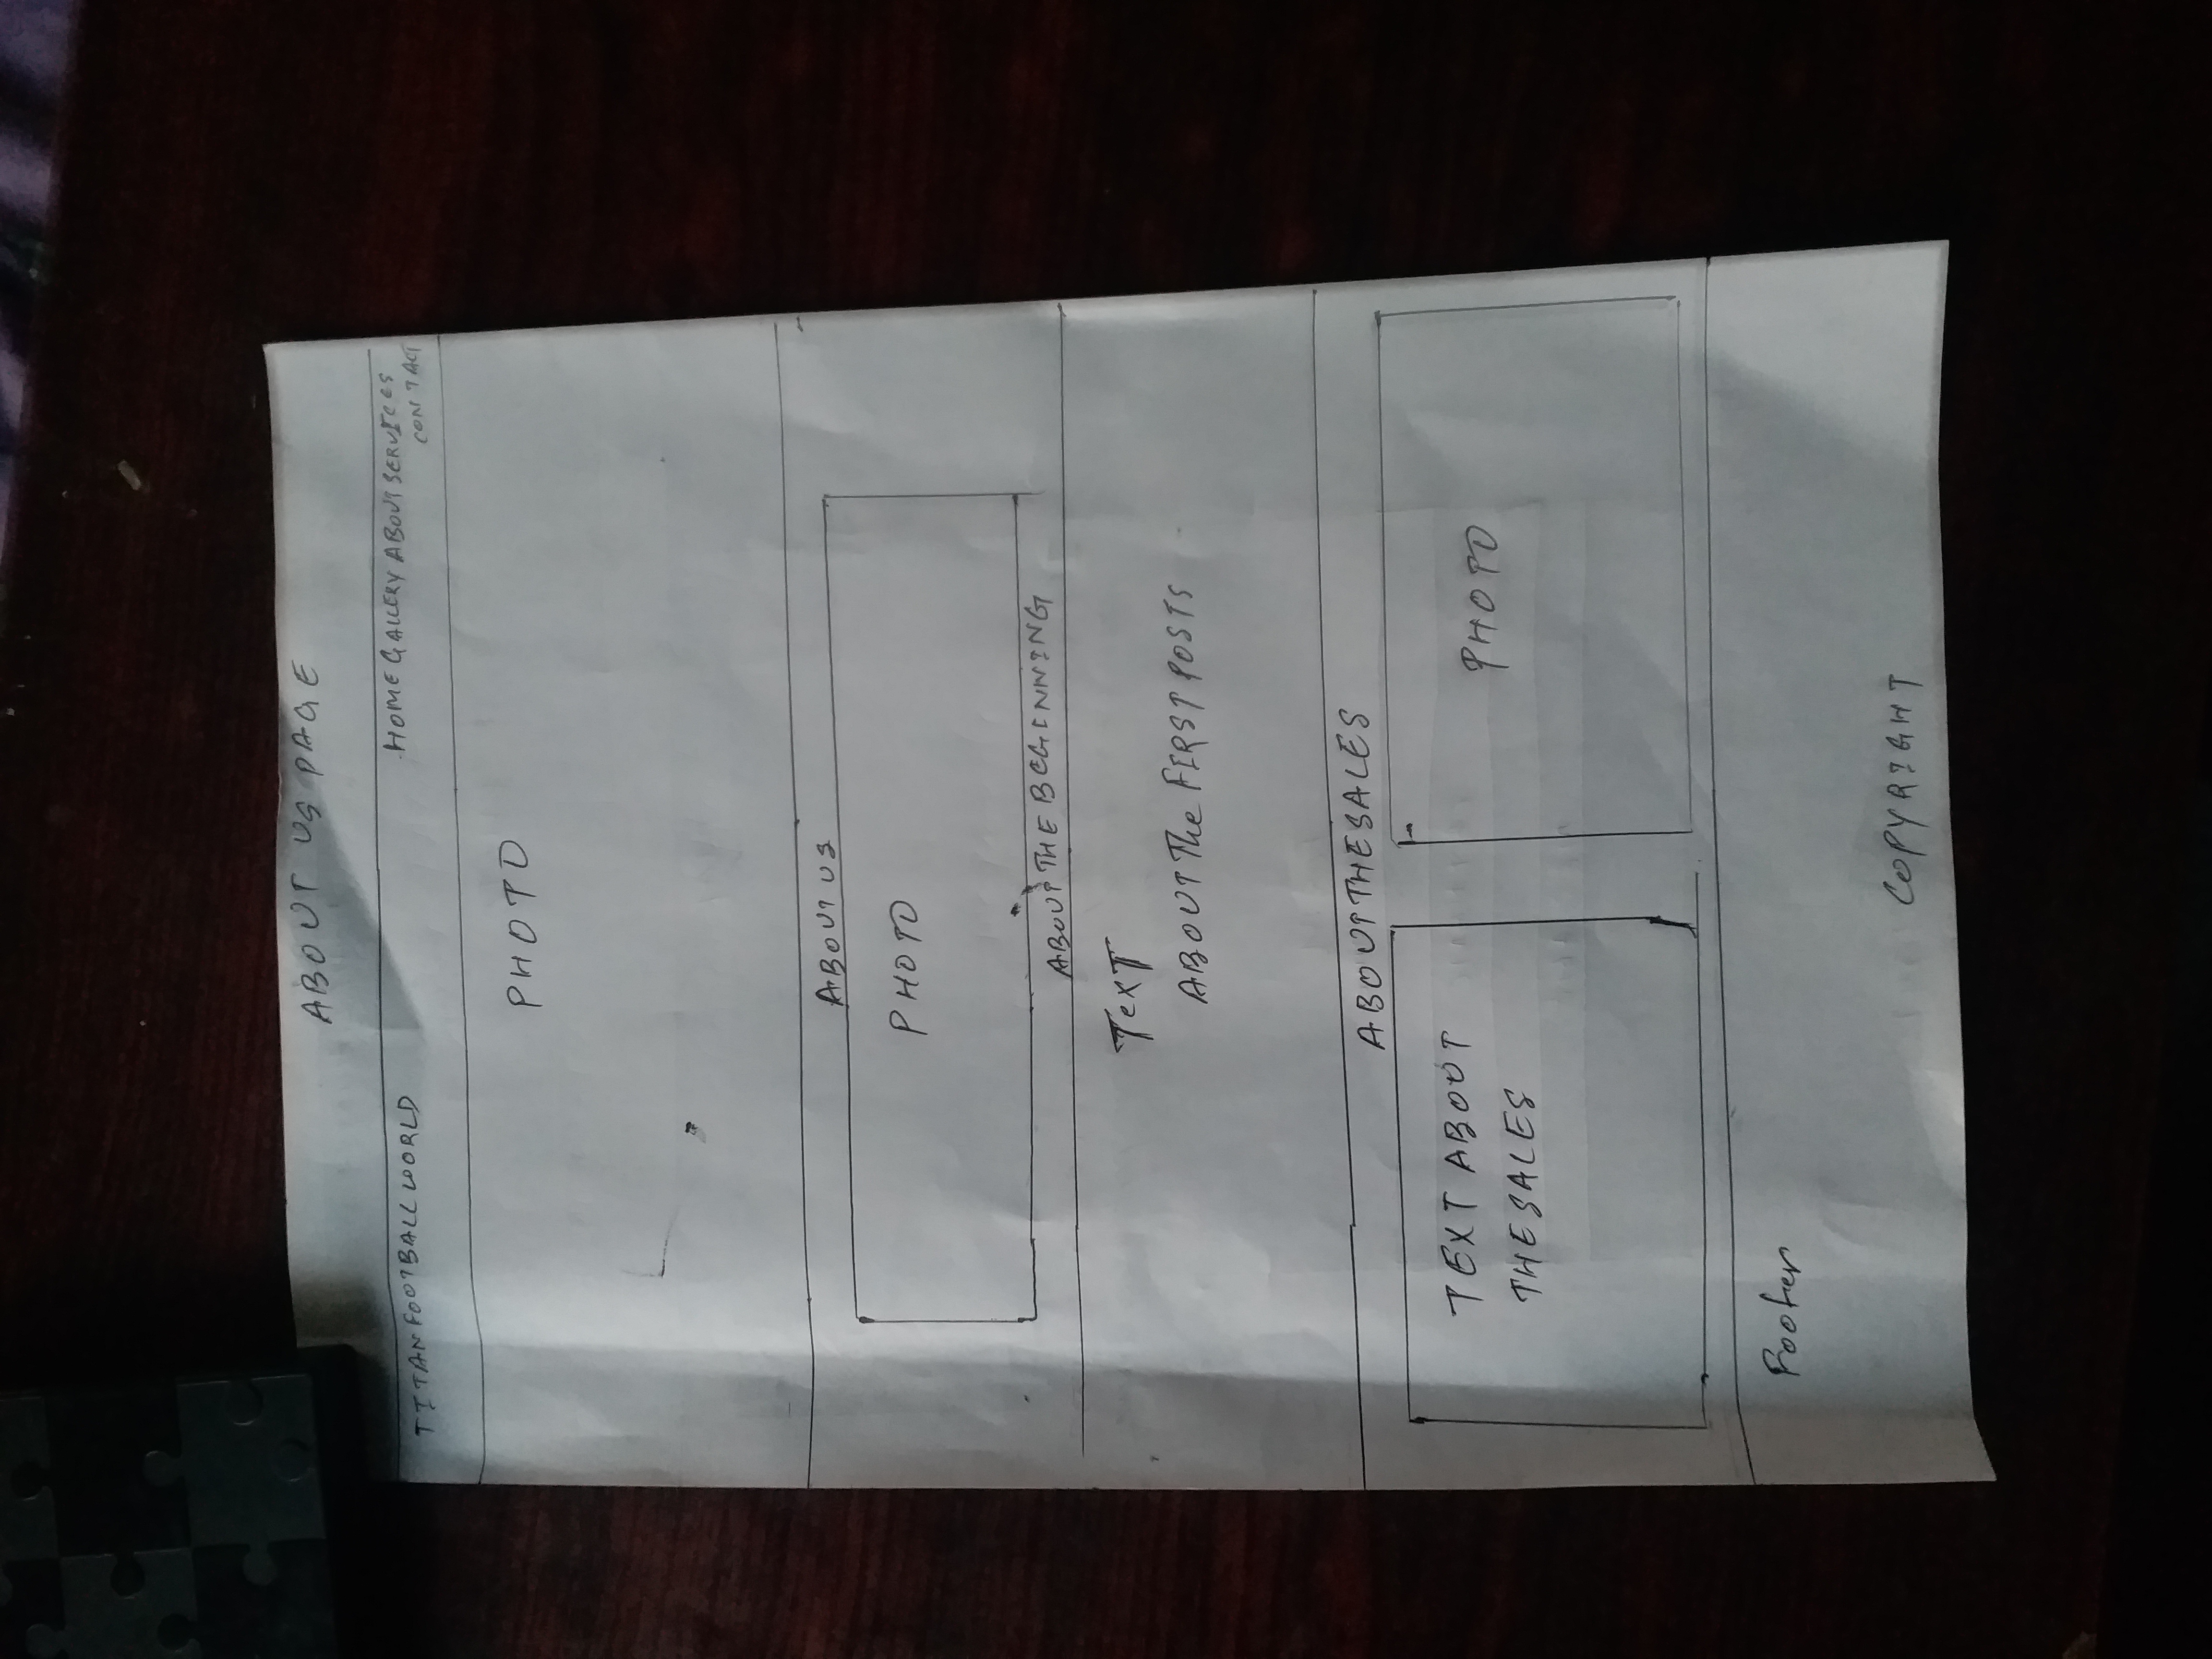 ABOUT US PAGE
TITANFOOTBALLWORLD
HOME GALLERY ABOUT SERVICES
CONTACT
PHOTO
ABOUT US
PHOTO
ABOUT THE BEGINNING
TexT
ABOUT The FIRST POSTS
ABOUT THE SALES
TEXT ABOUT
THE SALES
PHOTO
Footer
COPYRIGHT